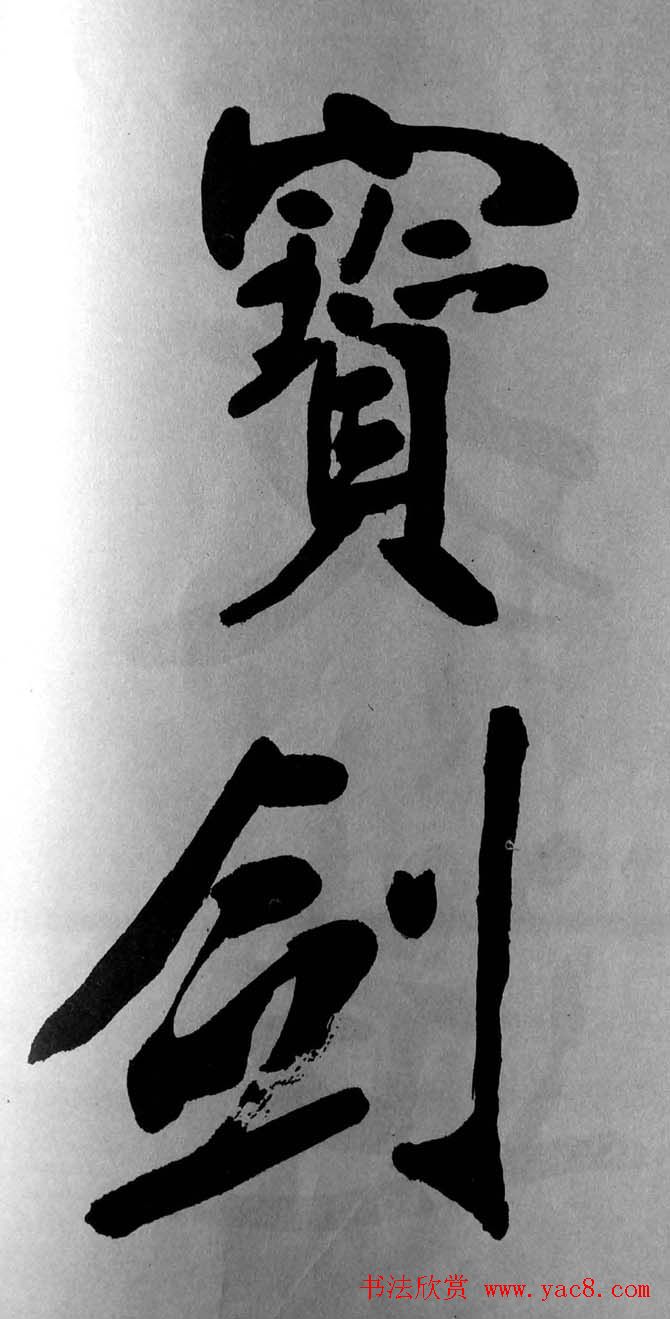 寶
剑
书法欣赏 www.yac8.com